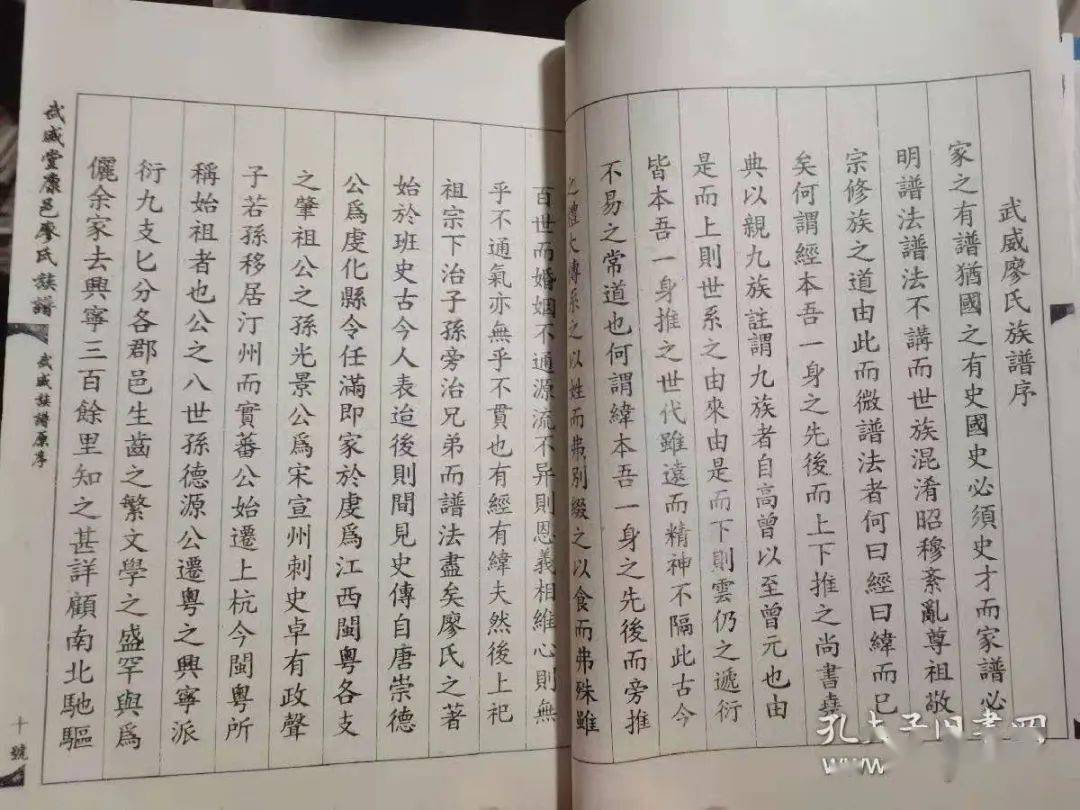 武威廖氏族譜序
家之有譜猶國之有史國史必須史才而家譜必
明譜法譜法不講而世族混淆昭穆紊亂尊祖敬
宗修族之道由此而微譜法者何曰經曰緯而已
矣何謂經本吾一身之先後而上下推之尚書堯
典以親九族註謂九族者自高曾以至曾元也由
是而上則世系之由來由是而下則雲仍之遞衍
皆本吾一身推之世代雖遠而精神不隔此古今
不易之常道也何謂緯本吾一身之先後而旁推
之禮大傳系之以姓而弗別綴之以食而弗殊雖
百世而婚姻不通源流不异則恩義相維心則無
乎不通氣亦無乎不貫也有經有緯夫然後上祀
祖宗下治子孫旁治兄弟而譜法盡矣廖氏之著
始於班史古今人表迨後則間見史傳自唐崇德
公爲虔化縣令任滿即家於虔爲江西閩粵各支
之肇祖公之孫光景公爲宋宣州刺史卓有政聲
子若孫移居汀州而實蕃公始遷上杭今閩粵所
稱始祖者也公之八世孫德源公遷粵之興寧派
衍九支匕分各郡邑生齒之繁文學之盛罕與爲
儷余家去興寧三百餘里知之甚詳顧南北馳驅
武威堂康邑廖氏族譜
武威族譜原序
十號
孔夫子旧书网
www.